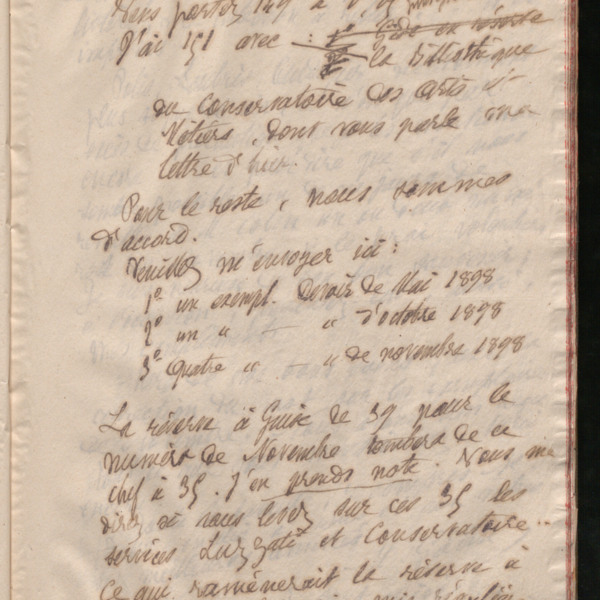 J'ai 151 avec : la bibliothèque
du Conservatoire des arts et
Métiers, dont vous parle ma
lettre d'hier.
Pour le reste, nous sommes
d'accord.
Veuillez m'envoyer ici :
1º un exempl. Devoir de Mai 1898
2º un " — " d'octobre 1898
3º quatre " — " de novembre 1898
La réserve à Guise de 39 pour le
numéro de Novembre tombera de ce
chef à 35. J'en prends note. Vous me
direz si vous levez sur ces 35 les
services et Conservatoire..
ce qui ramènerait la réserve à